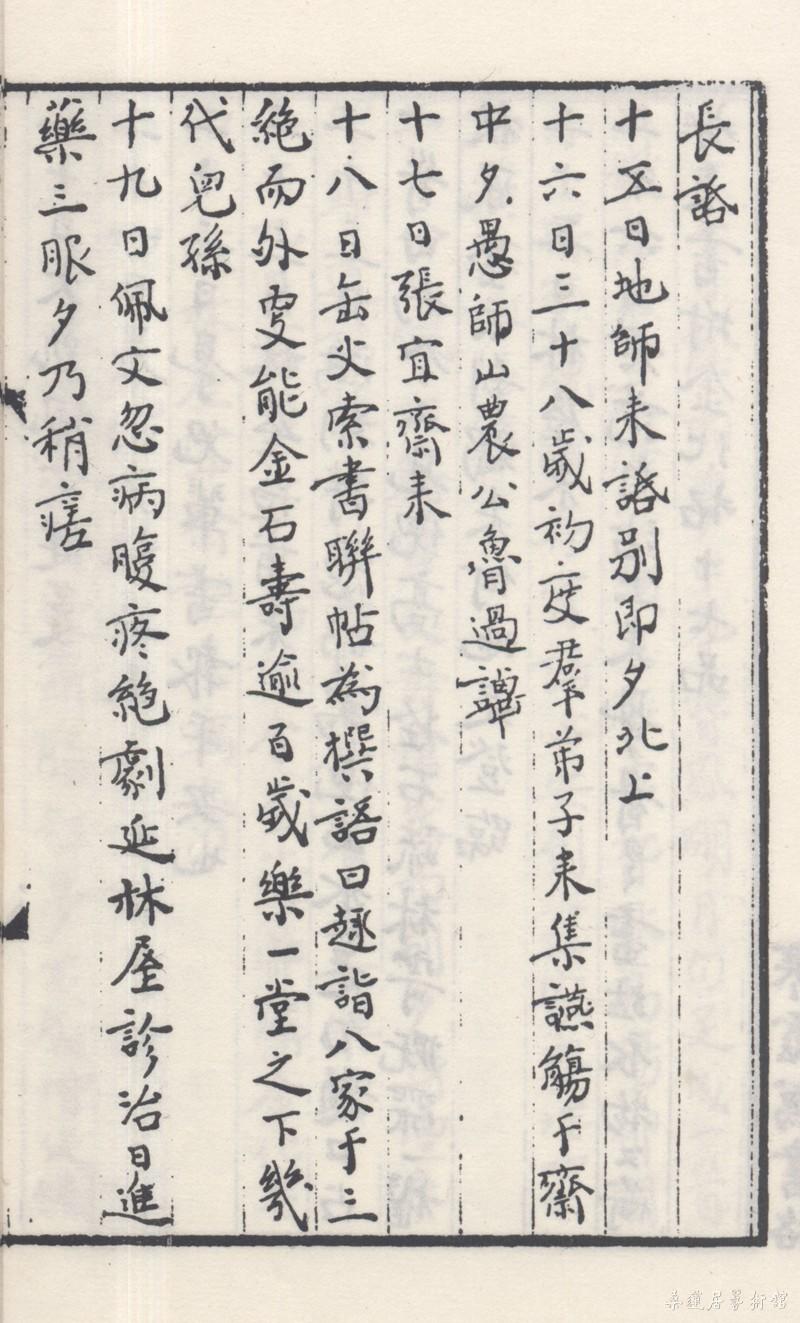 長語
十五日地師来話别即夕北上
十六日三十八歲初度羣弟子来集讌觴于齋
中夕愚師山農公魯過譚
十七日張宜齋来
十八日缶父索書聯帖為撰語曰趣詣八家于三
絶而外更能金石壽逾百歲樂一堂之下幾
代兒孫
十九日佩文忽病腹疼絶劇延林屋診治日進
藥三服夕乃稍瘥
桑蓮居篆術館